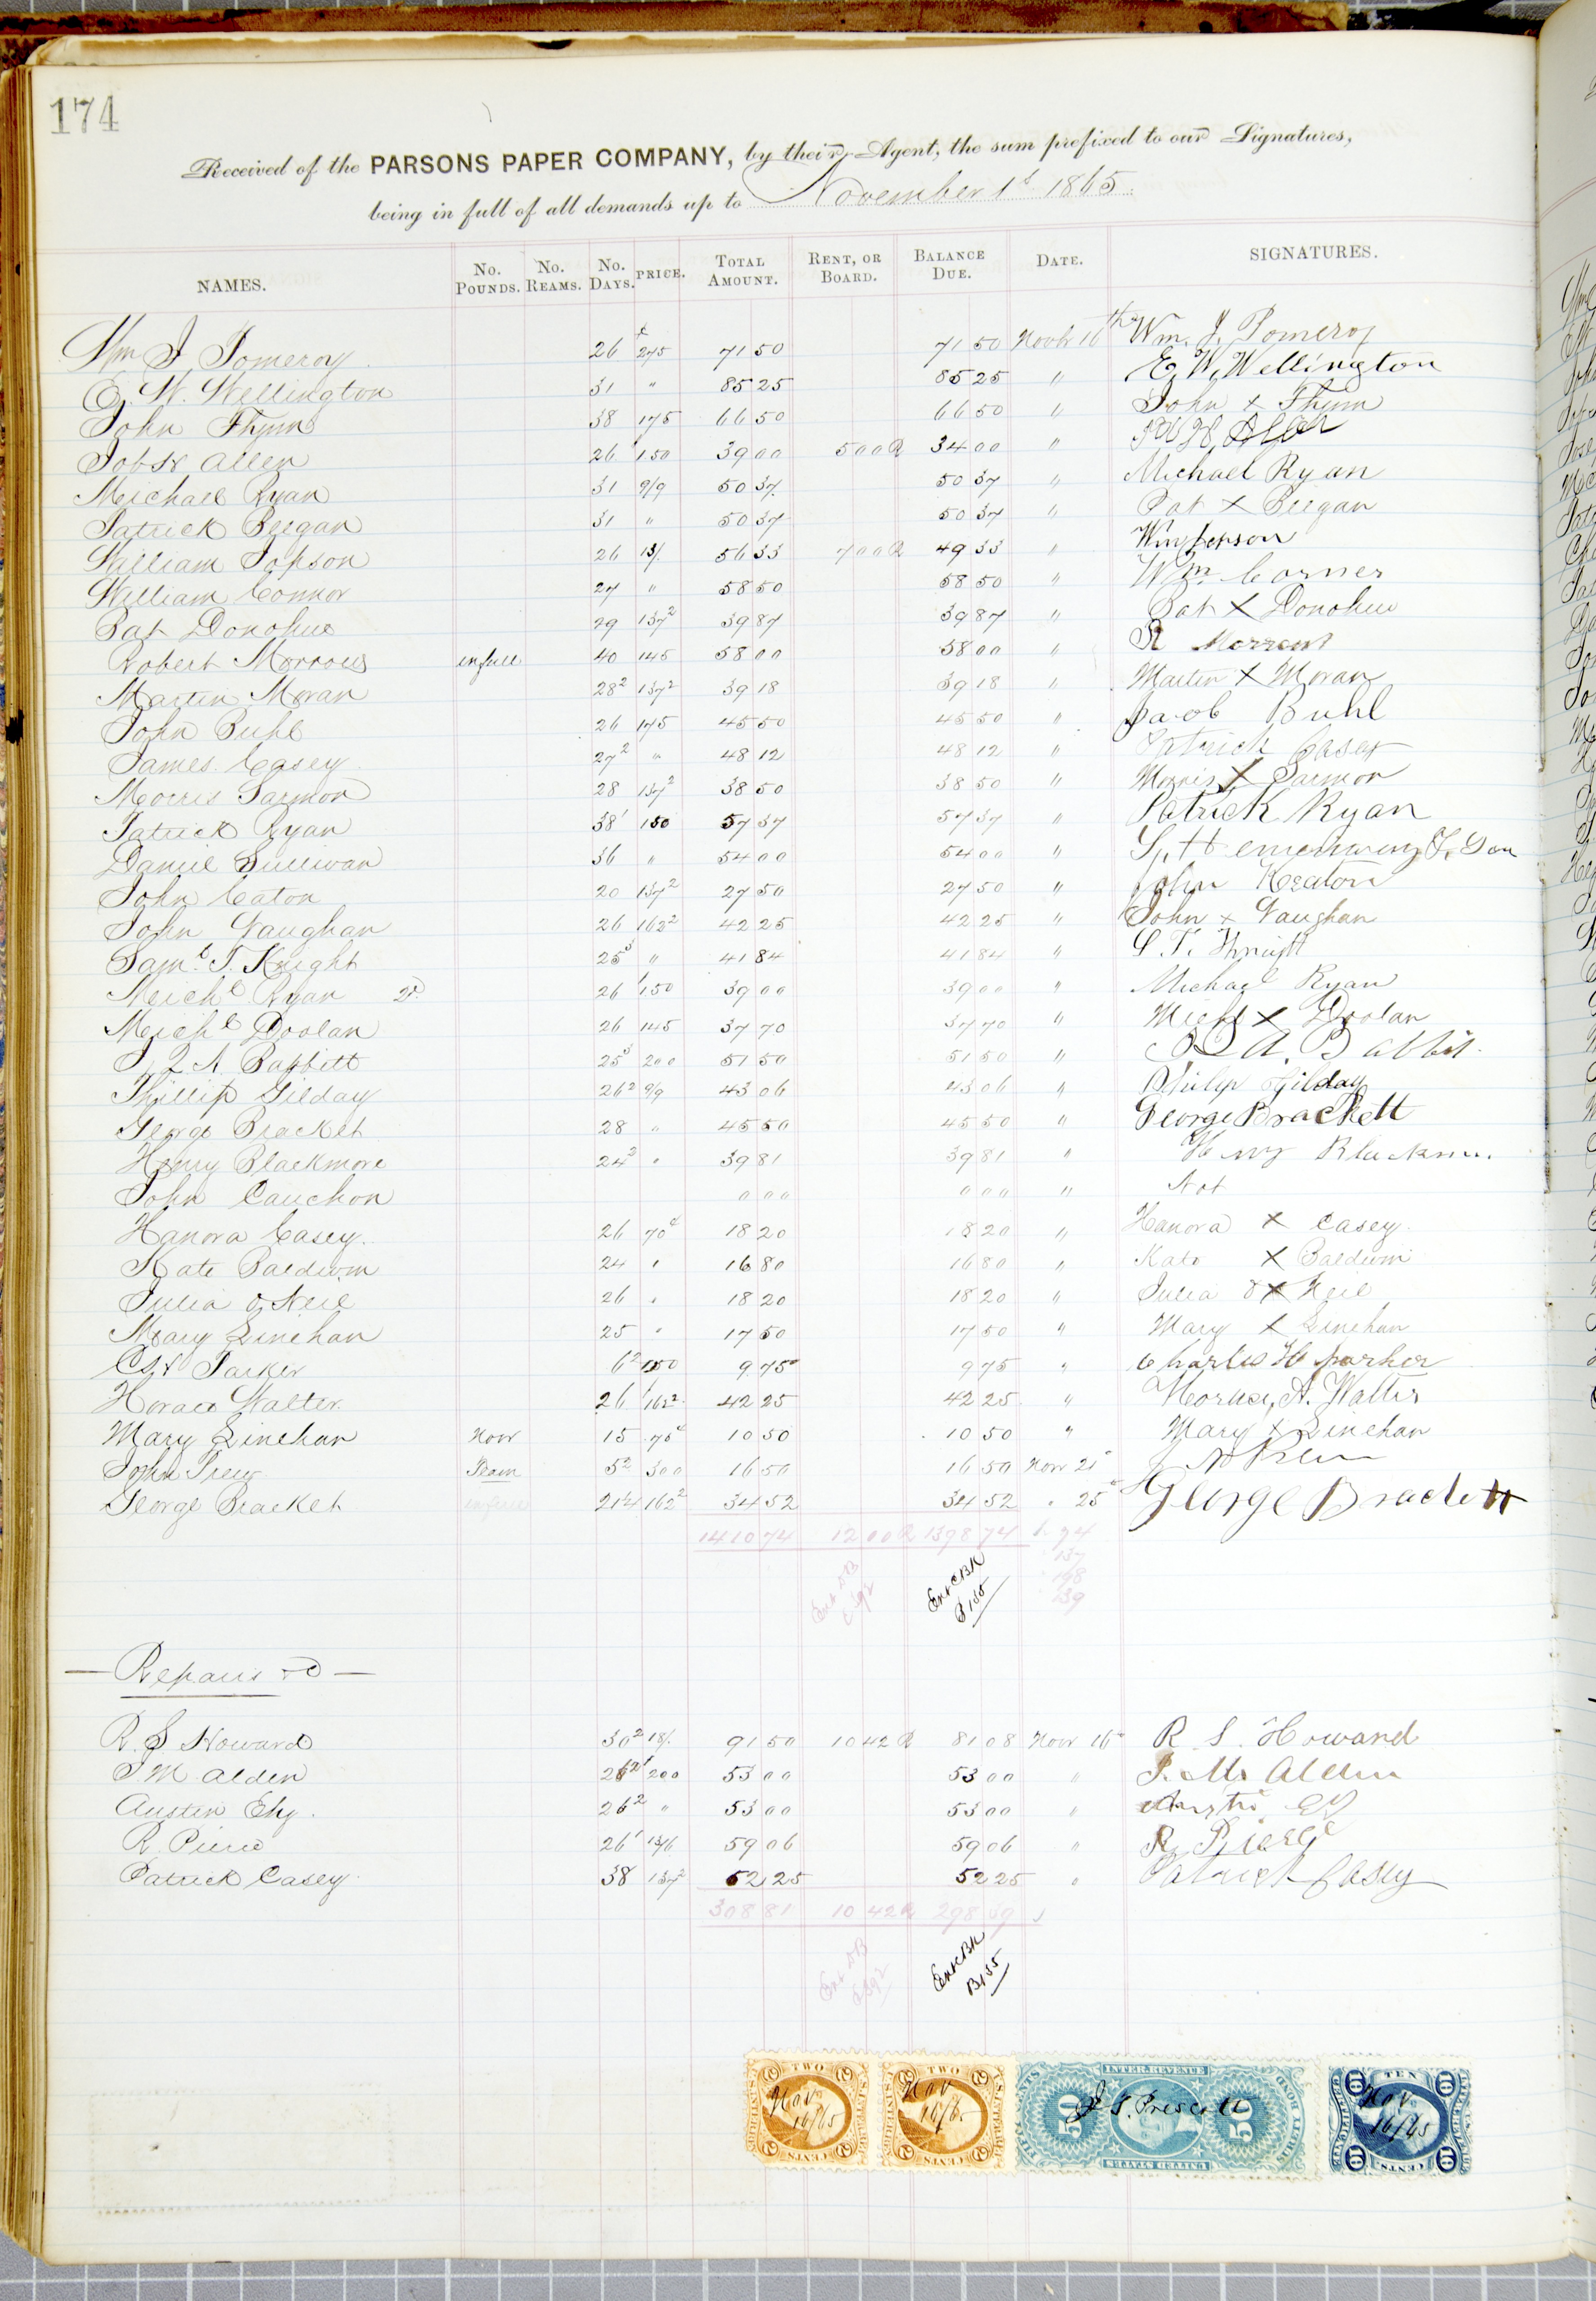 174
Received of the PARSONS PAPER COMPANY, by their Agent, the sum prefixed to our Signatures,
being in full of all demands up to November 1st 1865
NAMES. No. Pounds. No. Reams. No. Days. PRICE. Total Amount. Rent, or Board. Balance Due. Date. SIGNATURES.
Wm J Pomeroy 26 275 71 50 71 50 Novbr 16th Wm. J. Pomeroy
E. W. Wellington 31 " 85 25 85 25 " E. W. Wellington
John Flynn 38 175 66 50 66 50 " John x Flynn
Job H Allen 26 150 39 00 5 00 R 34 00 "
Michael Ryan 31 9/9 50 37 50 37 " Michael Ryan
Patrick Beegan 31 " 50 37 50 37 " Pat X Beegan
William Jopson 26 13/ 56 33 7 00 R 49 33 " Wm Jopson
William Connor 27 " 58 50 58 50 " Wm Corner
Pat Donohue 29 137² 39 87 39 87 " Pat X Donohue
Robert Morrow in full 40 145 58 00 58 00 " R Morrow
Martin Moran 28² 137² 39 18 39 18 " Martin X Moran
John Buhl 26 175 45 50 45 50 " Jacob Buhl
James Casey 27² " 48 12 48 12 " Patrick Casey
Morris Larmon 28 137² 38 50 38 50 " Morris X Larmon
Patrick Ryan 38' 150 57 37 57 37 " Patrick Ryan
Daniel Sullivan 36 " 54 00 54 00 "
John Caton 20 137² 27 50 27 50 " John Keaton
John Vaughan 26 162² 42 25 42 25 " John x Vaughan
Saml. T. Knight 25³ " 41 84 41 84 " S. T. Knight
Michl Ryan 2d 26 150 39 00 39 00 " Michael Ryan
Michl Doolan 26 145 37 70 37 70 " Michl X Doolan
J. L. A. Babbitt 25³ 200 51 50 51 50 " A. Babbit
Phillip Gilday 26² 9/9 43 06 43 06 " Philip Gilday
George Bracket 28 " 45 50 45 50 " George Brackett
Henry Blackmore 24² " 39 81 39 81 " Henry
John Cauchon 0 00 0 00 " Not
Hanora Casey 26 70c 18 20 18 20 " Hanora X Casey
Kate Baldwin 24 " 16 80 16 80 " Kate X Baldwin
Julia O Neil 26 " 18 20 18 20 " Julia O X Neil
Mary Linehan 25 " 17 50 17 50 " Mary X Linehan
C H Parker 6² 150 9 75 9 75 " Charles H Parker
Horace Walter 26 162² 42 25 42 25 " A. Walter
Mary Linehan Novr 15 70c 10 50 10 50 " Mary X Linehan
John Prew Team 5² 300 16 50 16 50 Novr 21
George Bracket in full 21¼ 162² 34 52 34 52 " 25 George Brackett
1410 74 12 00 R 1398 74 94
137
198
239
Ent CBK
B 155
Repairs &c
R. S. Howard 30² 18/ 91 50 10 42 R 81 08 Novr 16 R. S. Howard
J M Alden 26² 200 53 00 53 00 " J. M. Alden
Austin Ely. 26² " 53 00 53 00 "
R. Pierce 26' 13/6 59 06 59 06 " R. Pierce
Patrick Casey 38 137² 52 25 52 25 " Patrick Casey
308 81 10 42 R 298 39
Ent CBK
B 155
TWO CENTS Nov 16/65
TWO CENTS Nov 16/65
INTER. REVENUE 50 50 UNITED STATES J S. Prescott
TEN CENTS 10 10 Nov 16/65